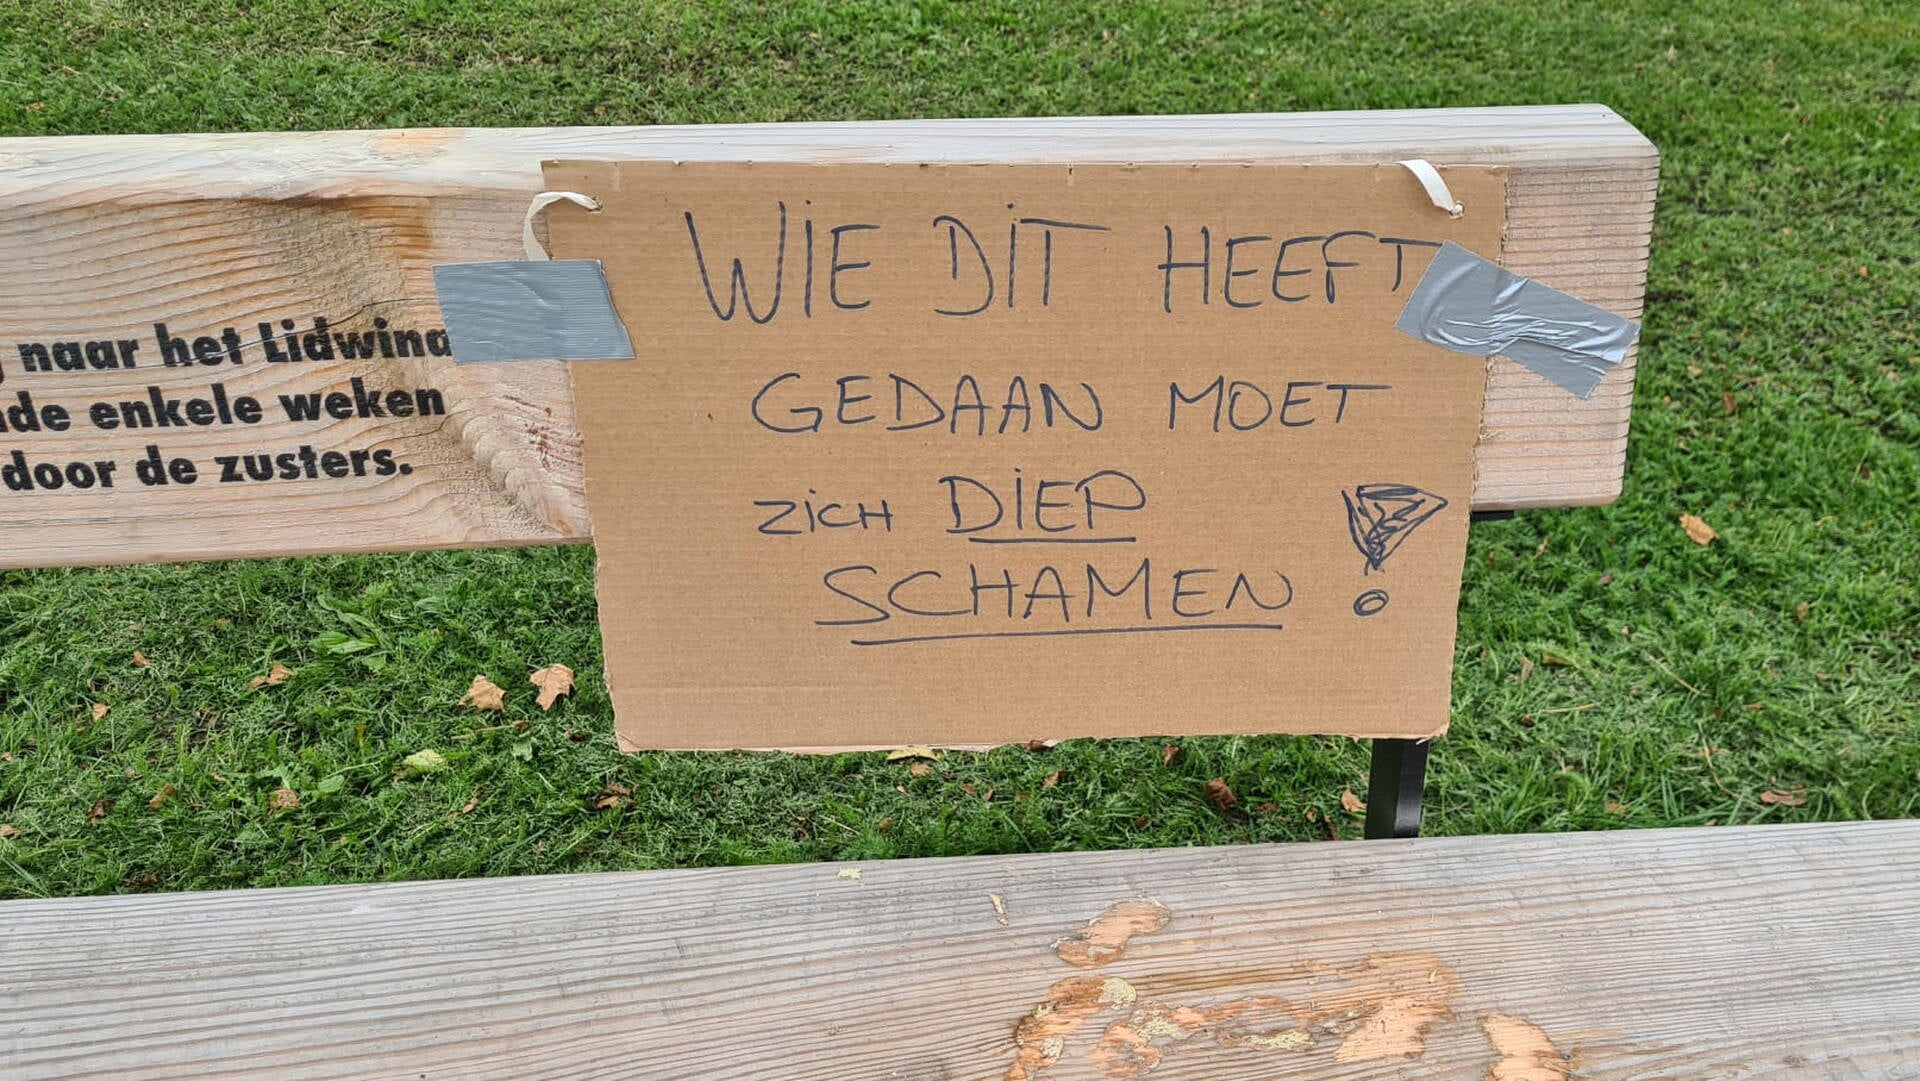 naar het Lidwina
de enkele weken
door de zusters.
WIE DIT HEEFT
GEDAAN MOET
ZICH DIEP
SCHAMEN !